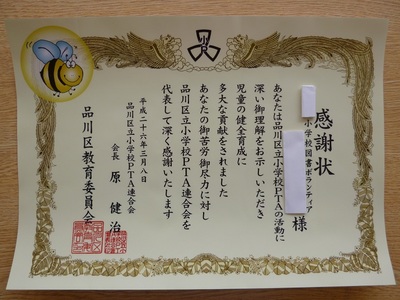 感謝状
小学校図書ボランティア
様
あなたは品川区立小学校PTAの活動に
深い御理解をお示しいただき
児童の健全育成に
多大な貢献をされました
あなたの御苦労御尽力に対し
品川区立小学校PTA連合会を
代表して深く感謝いたします
平成二十六年三月八日
品川区立小学校PTA連合会
会長 原 健治
品川区教育委員会